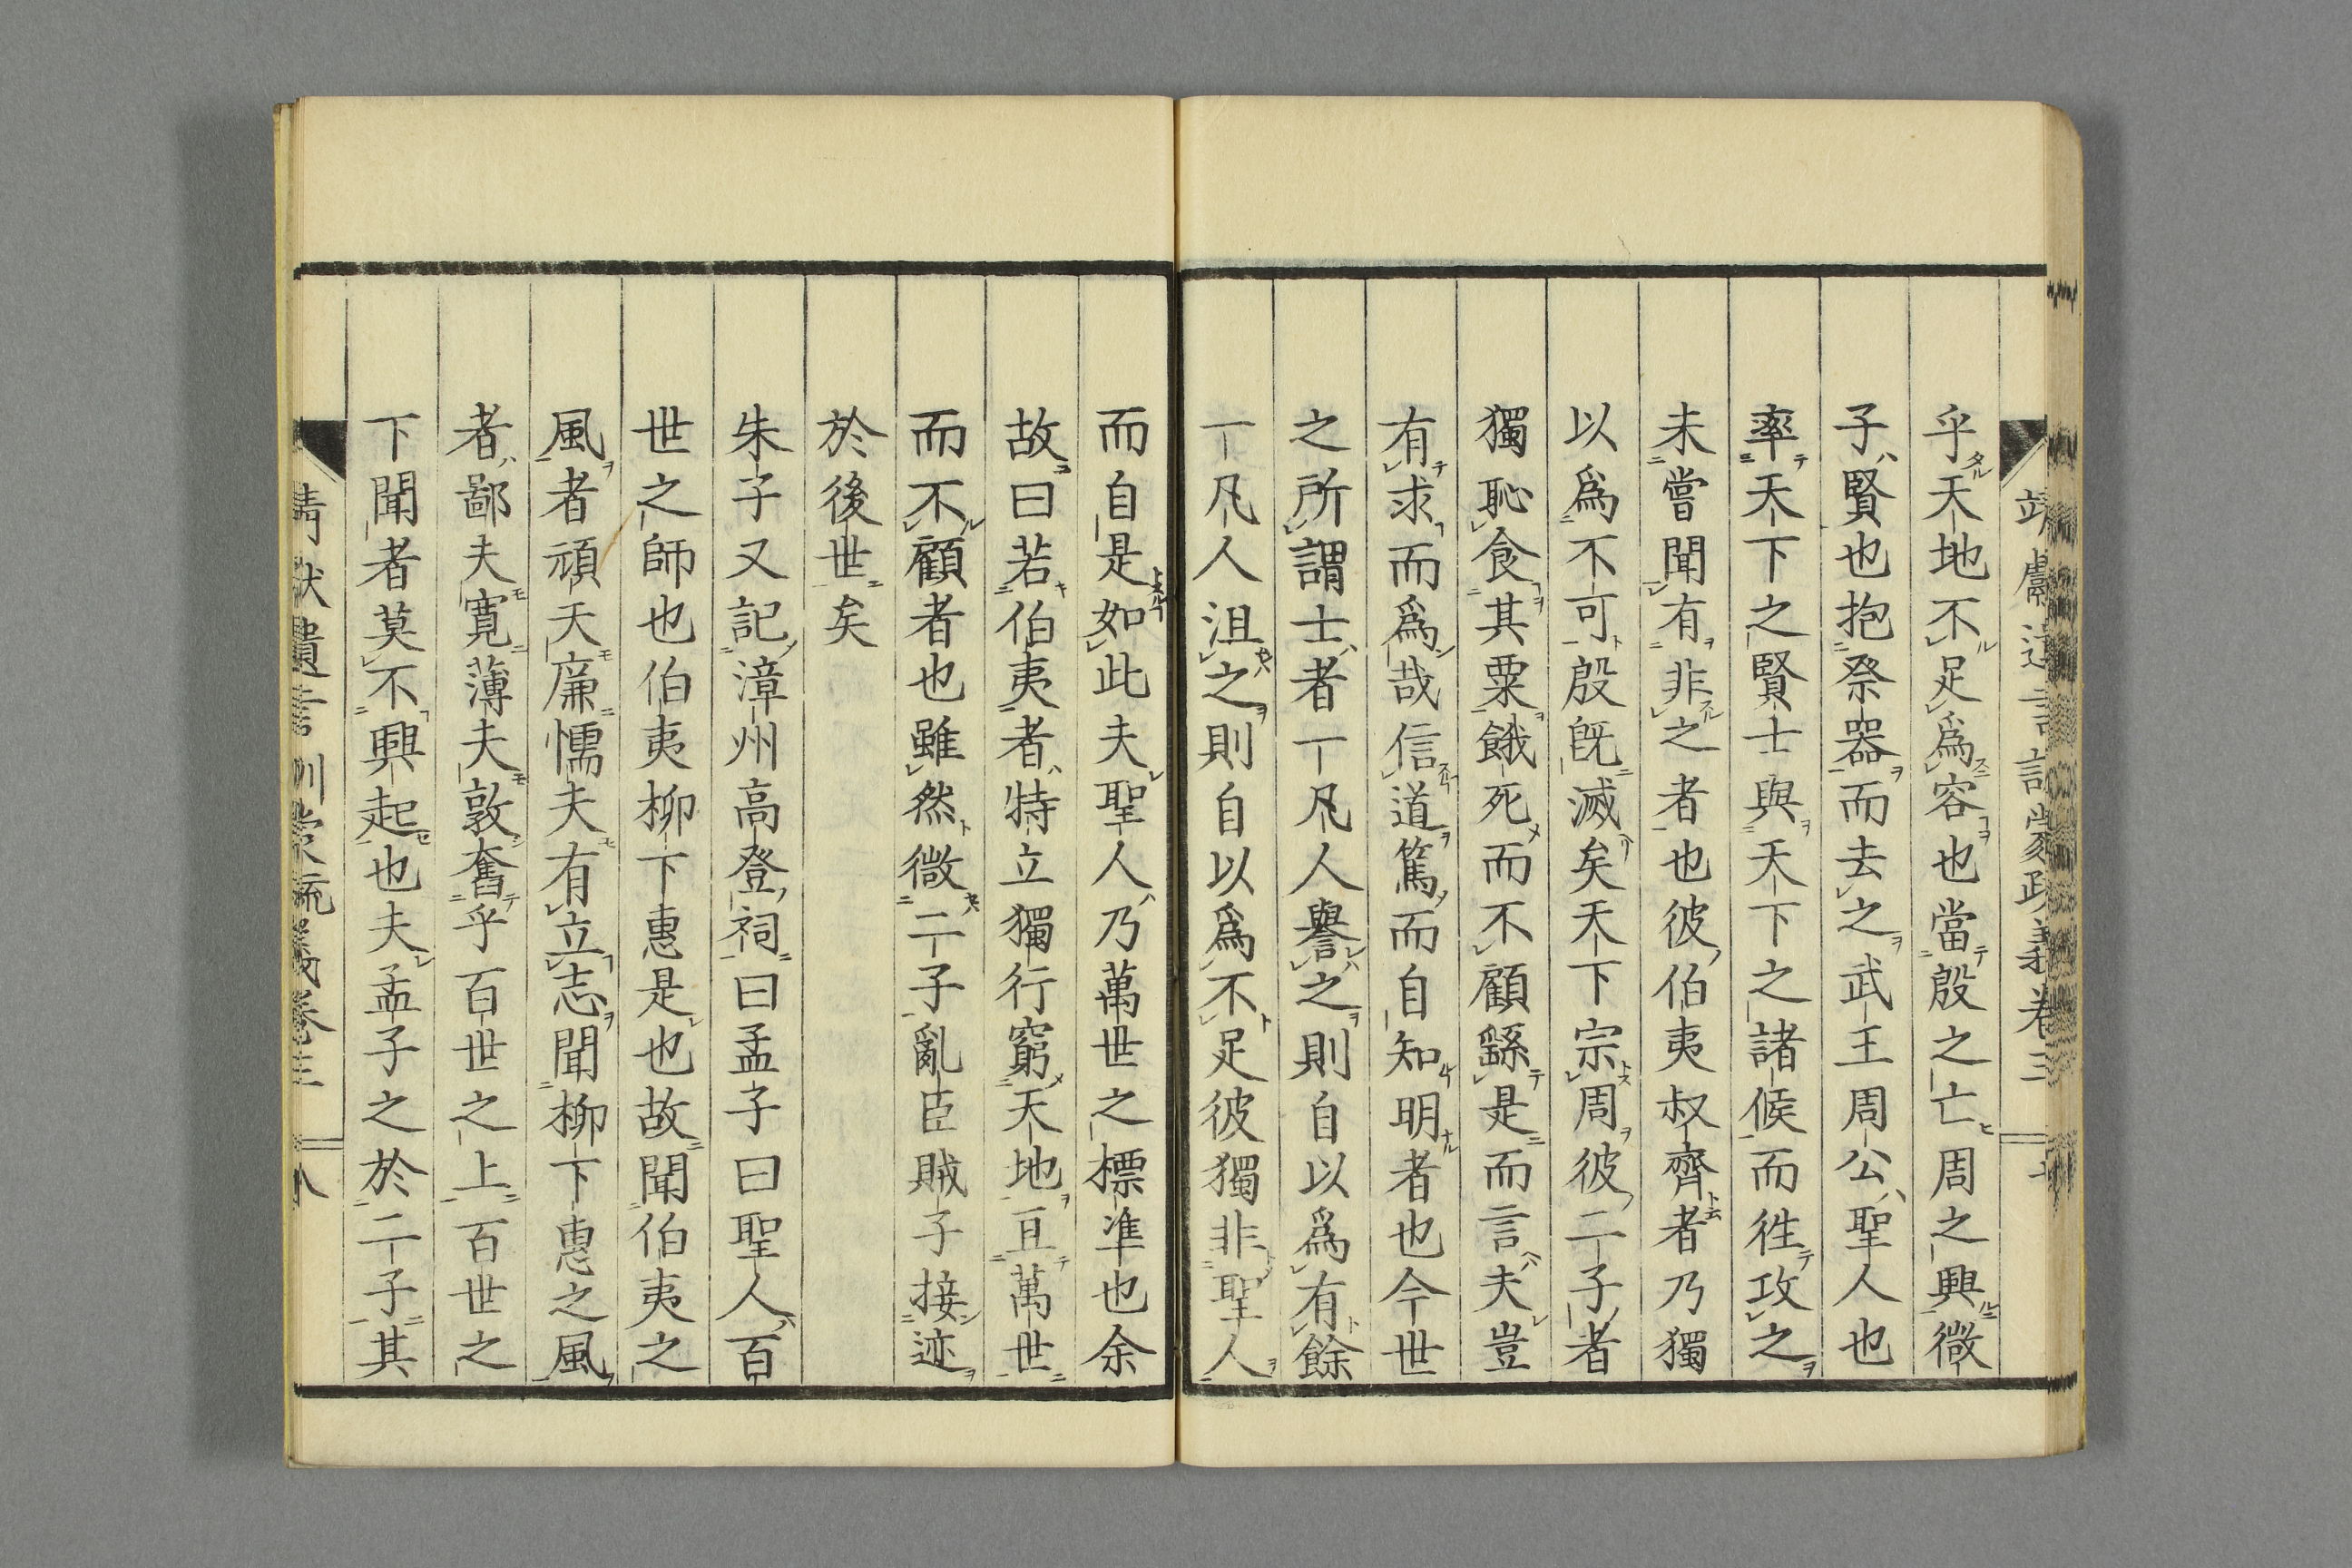 乎天地不足爲容也當殷之亡周之興微
子賢也抱祭器而去之武王周公聖人也
率天下之賢士與天下之諸候而徃攻之
未嘗聞有非之者也彼伯夷叔齊者乃獨
以爲不可殷既滅矣天下宗周彼二子者
獨恥食其粟餓死而不顧繇是而言夫豈
有求而爲哉信道篤而自知明者也今世
之所謂士者一凡人譽之則自以爲有餘
一凡人沮之則自以爲不足彼獨非聖人
而自是如此夫聖人乃萬世之標準也余
故曰若伯夷者特立獨行窮天地亘萬世
而不顧者也雖然微二子亂臣賊子接迹
於後世矣
朱子又記漳州高登祠曰孟子曰聖人百
世之師也伯夷柳下惠是也故聞伯夷之
風者頑夫廉懦夫有立志聞柳下惠之風
者鄙夫寛薄夫敦奮乎百世之上百世之
下聞者莫不興起也夫孟子之於二子其